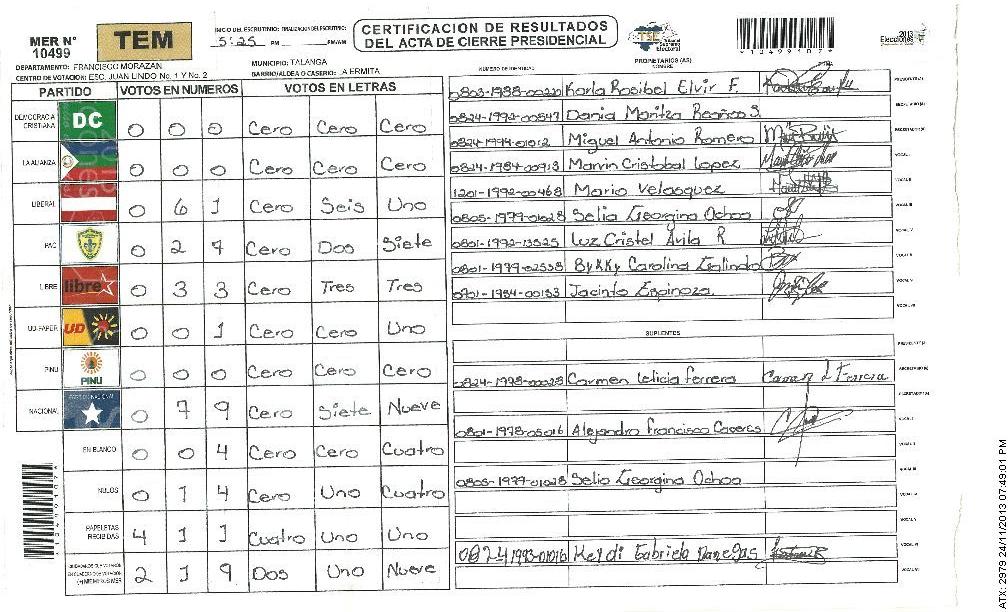 MER N° 10499
TEM
INICIO DEL ESCRUTINIO: FINALIZACION DEL ESCRUTINIO:
5:25 PM PM/AM
CERTIFICACION DE RESULTADOS
DEL ACTA DE CIERRE PRESIDENCIAL
TSE Tribunal Supremo Electoral
*10499107*
2013 Elecciones
DEPARTAMENTO: FRANCISCO MORAZAN
MUNICIPIO: TALANGA
CENTRO DE VOTACION: ESC. JUAN LINDO No. 1 Y No. 2
BARRIO/ALDEA O CASERIO: LA ERMITA
PARTIDO VOTOS EN NUMEROS VOTOS EN LETRAS
DEMOCRACIA CRISTIANA DC 0 0 0 Cero Cero Cero
LA ALIANZA 0 0 0 Cero Cero Cero
LIBERAL 0 6 1 Cero Seis Uno
PAC 0 2 7 Cero Dos Siete
LIBRE libre 0 3 3 Cero Tres Tres
UD-FAPER UD 0 0 1 Cero Cero Uno
PINU PINU 0 0 0 Cero Cero Cero
NACIONAL 0 7 9 Cero Siete Nueve
EN BLANCO 0 0 4 Cero Cero Cuatro
NULOS 0 1 4 Cero Uno Cuatro
PAPELETAS RECIBIDAS 4 1 1 Cuatro Uno Uno
2 1 9 Dos Uno Nueve
NUMERO DE IDENTIDAD PROPIETARIOS (AS) NOMBRE
0803-1988-00220 Karla Rosibel Elvir F.
0824-1992-00547 Dania Maritza
0824-1994-01012 Miguel Antonio Romero
0824-1984-00913 Marvin Cristobal Lopez
1201-1992-00468 Mario Velasquez
0805-1977-01028 Selia Georgina Ochoa
0801-1992-13525 Luz Cristel Avila R
0801-1979-02538 Bykky Carolina Galindo
0701-1984-00133 Jacinto Espinoza
SUPLENTES
0824-1998-00028 Carmen Leticia Ferrera Carmen L Ferrera
0801-1978-05016 Alejandro Francisco Caceres
0805-1977-01028 Selia Georgina Ochoa
0824 1993-01016 Keydi Gabriela Banegas
ATX: 2979 24/11/2013 07:49:01 PM